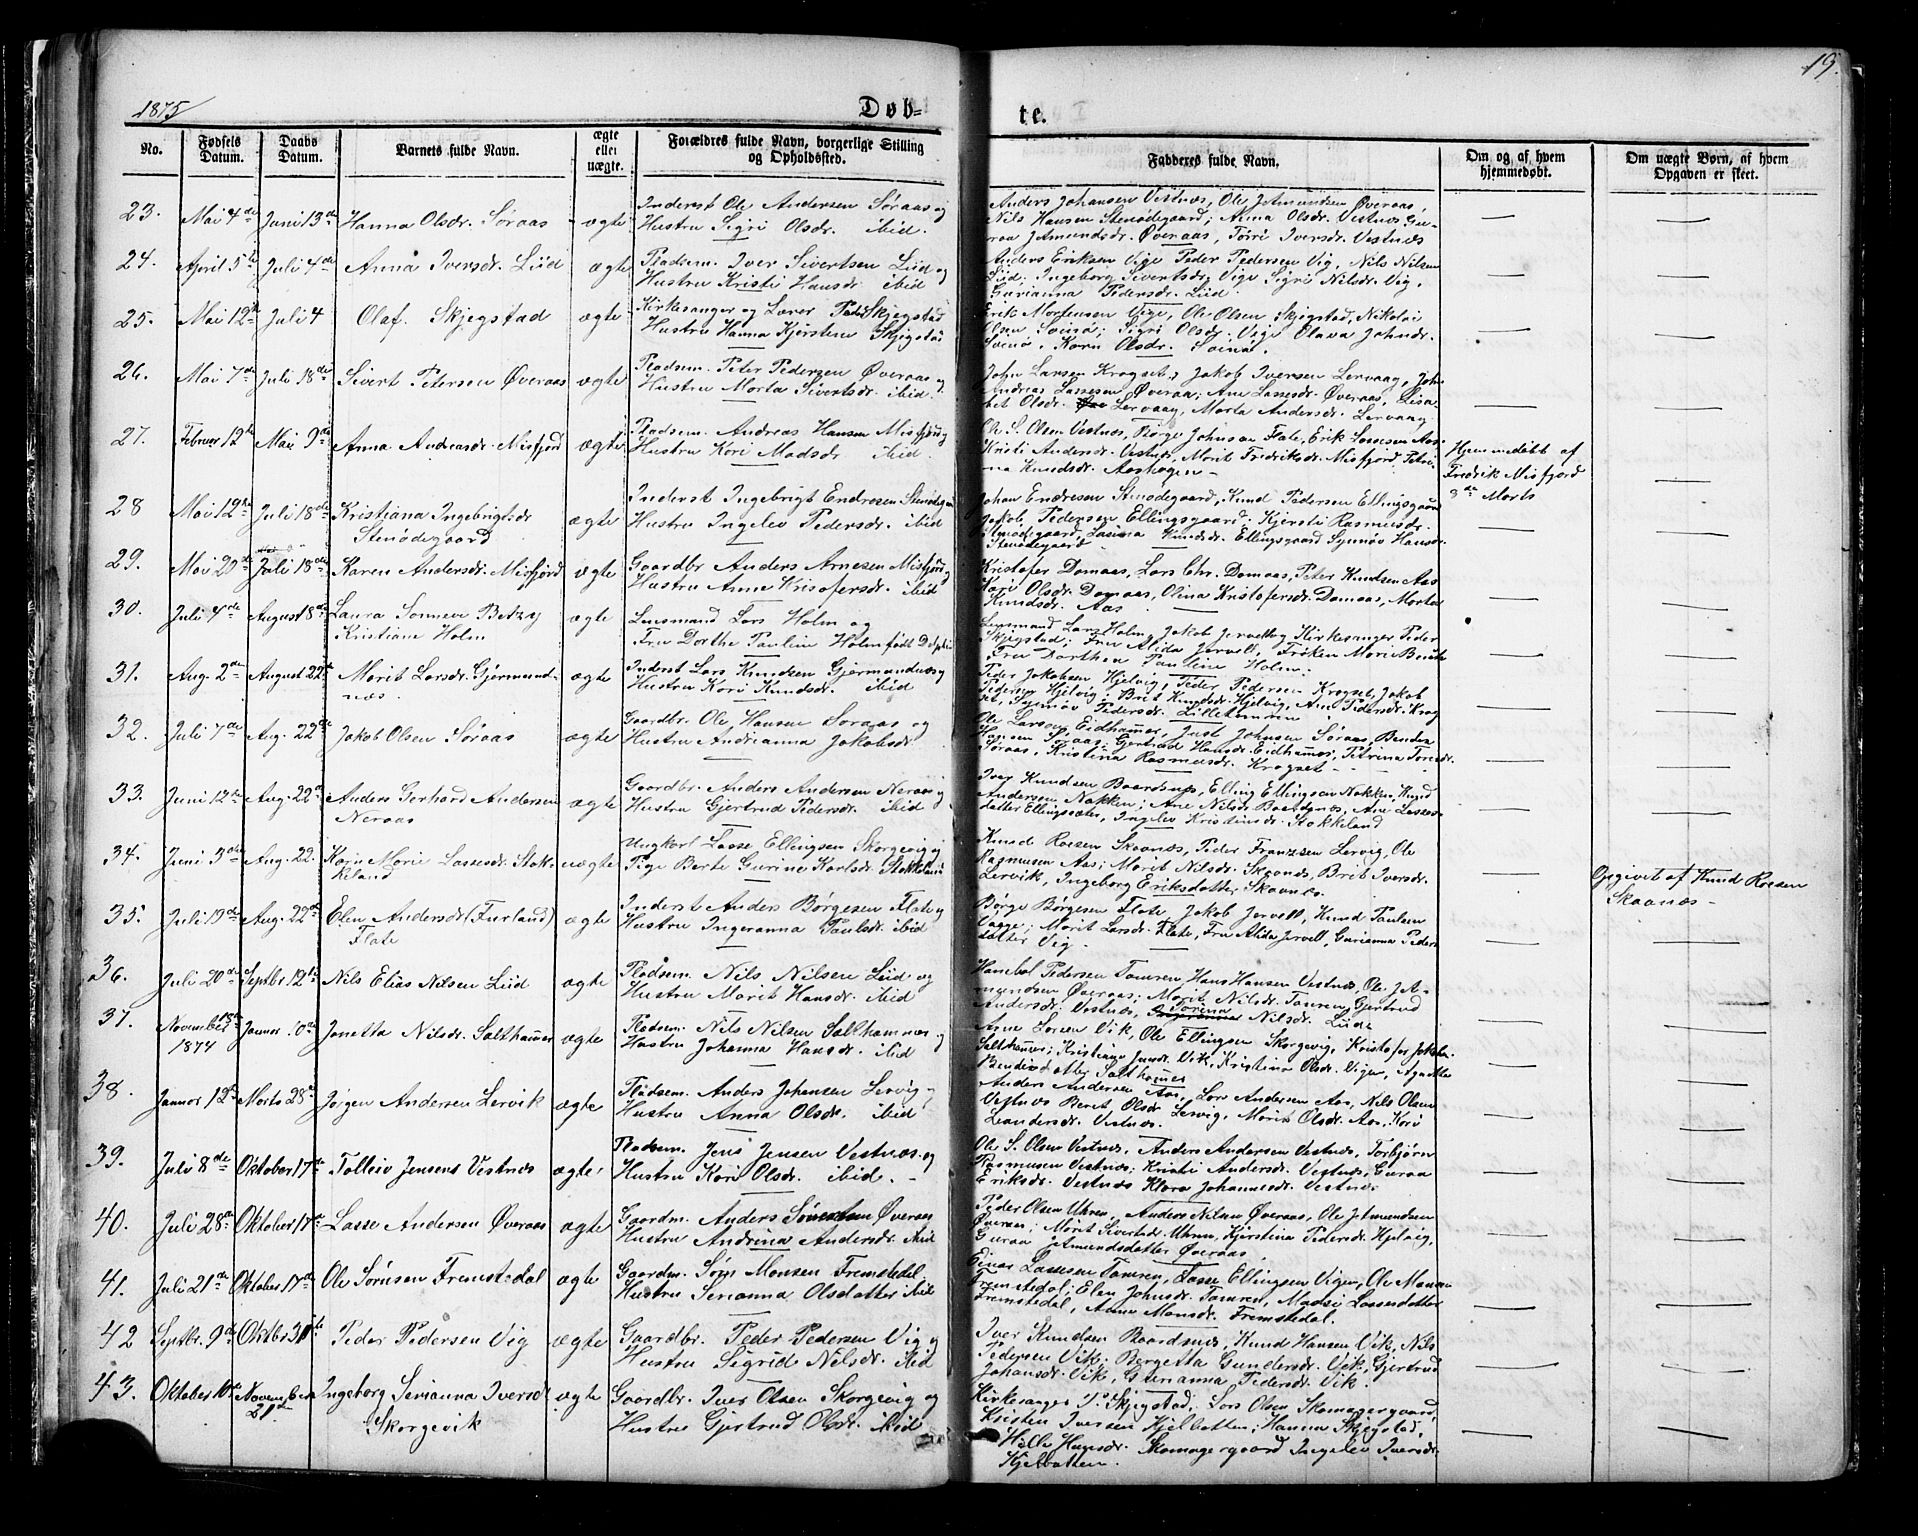 1875
Døb=
te.
19.
No.
Fødsels Datum.
Daabs Datum.
Barnets fulde Navn.
ægte eller uægte.
Forældres fulde Navn, borgerlige Stilling og Opholdssted.
Fadderes fulde Navn.
Om og af hvem hjemmedøbt.
Om uægte Børn, af hvem Opgaven er skeet.
23. Mai 4de Juni 13de Hanna Olsdr. Søraas ægte
Inderst Ole Andersen Søraas og
Hustru Sigri Olsdr. ibid.
Anders Johansen Vestnæs, Ole Amundsen Øveraas,
Nils Hansen Stenødegaard; Anna Olsdr. Vestnæs Gu-
raa Amundsdr. Øveraas, Tørri Iversdr. Vestnæs
24. April 5te Juli 4de Anna Iversdr. Liid ægte
Pladsm. Iver Sivertsen Liid og
Hustru Kristi Hansdr. ibid
Anders Eriksen Vige Peder Pedersen Vig, Nils Nilsen
Liid; Ingeborg Sivertsdr. Vige Sigri Nilsdr. Vig,
Gurianna Pedersdr. Liid.
25. Mai 12te Juli 4 Olaf Skjegstad ægte
Kirkesanger og Lærer Peder Skjegstad
Hustru Hanna Kjerstine Skjegstad
Erik Mortensen Vige, Ole Olsen Skjegstad, Nikolai
Olsen Svinø; Sigri Olsdr. Vige Olava Johndr.
Svinø, Karn Olsdr. Svinø.
26. Mai 7de Juli 18de Sivert Petersen Øveraas ægte
Pladsm. Peter Pedersen Øveraas og
Hustru Morta Sivertsdr. ibid.
John Larsen Krogset; Jakob Iversen Lervaag, John
Andreas Lassesen Øveraa; Ane Lassesdr. Øveraas, Lisa-
bet Olsdr. Lervaag, Morta Andersdr. Lervaag
27. Februar 12te Mai 9de Anna Andreasdr. Misfjord ægte
Pladsm. Andreas Hansen Misfjord og
Hustru Kari Madsdr. ibid.
Ole S. Olsen Vestnæs, Børge Johnsen Flate, Erik Larsen Aas
Kristi Andersdr. Vestnæs, Marit Fredriksdr. Misfjord, Petri-
na Knudsdr. Aashagen
Hjemmedøbt af
Fredrik Misfjord
8de Marts
28 Mai 12te Juli 18de Kristiana Ingebrigtsdr.
Stenødegaard ægte
Inderst Ingebrigt Endresen Stenødegaard
Hustru Ingelev Pedersdr. ibid
Johan Endresen Stenødegaard, Knud Pedersen Ellingsgaard
Jakob Pedersen Ellingsgaard. Kjersti Rasmusdr.
Stenødegaard, Lasina Knudsdr. Ellingsgaard Synnøv Hansdr.
Stenødegaard
29. Mai 20de Juli 18de Karen Andersdr. Misfjord ægte
Gaardbr Anders Arnesen Misfjord
Hustru Anne Kristofersdr. ibid
Kristofer Domaas, Lars Chr. Domaas, Peter Knudsen Aas
Kari Olsdr. Domaas, Olina Kristofersdr. Domaas, Marta
Knudsdr. Aas
30. Juli 4de August 8de Laura Betzy
Kristiane Holm ægte
Lensmand Lars Holm og
Fru Dorthe Pauline Holm født
Lensmand Lars Holm, Jakob Jervell Kirkesanger Peder
Skjegstad; Fru Alida Jervell, Frøken Marie
Fru Dorthea Pauline Holm.
31. Aug. 2de August 22de Marit Larsdr. Gjermund-
næs. ægte
Inderst Lars Knudsen Gjermundnæs
Hustru Kari Knudsdr. ibid
Peder Jakobsen Hjelvig, Peder Pedersen Krogset, Jakob
Pedersen Hjelvig; Brit Knudsdr. Hjelvig, Ane Pedersdr. Krog
set, Synnøv Pedersdr. Lilletomren
32. Juli 7de Aug. 22de Jakob Olsen Søraas ægte
Gaardbr. Ole Hansen Søraas og
Hustru Andrianna Jakobsdr
Ole Larsen Eidhamer, Just Johnsen Søraas, Bendix
Hansen Søraas; Gjertrud Hansdr. Eidhamer, Petrina
Søraas, Kristina Rasmusdr. Krogset
33. Juni 12te Aug. 22de Anders Gerhard Andersen
Neraas ægte
Gaardbr. Anders Andersen Neraas
Hustru Gjertrud Pedersdr. ibid
Iver Knudsen Baardsnæs, Elling Ellingsen Nakken, Knud
Andersen Nakken; Ane Nilsdr Baardsnæs, Ane Lasses-
datter Ellingsæter, Ingelev Kristinsdr. Stokkeland
34. Juni 3de Aug. 22. Karn Marie Lassesdr. Stok-
keland uægte
Ungkarl Lasse Ellingsen Skorgevig
Pige Berte Gurine Karlsdr. Stokkeland
Knud Roesen Skaanæs, Peder Franzsen Lervig, Ole
Rasmusen Aas; Marit Nilsdr. Skaanæs, Brit Iversdr.
Lervik, Ingeborg Eriksdatter Skaanæs.
Opgivet af Knud Roesen
Skaanæs
35. Juli 19de Aug. 22de Elen Andersdr. (Furland)
Flate ægte
Inderst Anders Børgesen Flate
Hustru Ingeranna Paulsdr. ibid
Børge Børgesen Flate, Jakob Jervell, Knud Paulsen
Vaage; Marit Larsdr. Flate, Fru Alida Jervell, Gurianna Peders
datter Vig
36. Juli 20de Septbr 12te Nils Elias Nilsen Liid ægte
Pladsm. Nils Nilsen Liid og
Hustru Marit Hansdr. ibid
Hanibal Pedersen Tomren Hans Hansen Vestnæs, Ole A-
mundsen Øveraas; Marit Nilsdr. Tomren, Gjertrud
Andersdr. Vestnæs, Sørina Nilsdr. Liid
37. November 13de 1874 Januar 10de Jonetta Nilsdr. Salthamer ægte
Pladsm. Nils Nilsen Salthammer og
Hustru Johanna Hansdr. ibid
Arne Larsen Vik, Ole Ellingsen Skorgevig, Kristofer Jakobsen
Salthamer; Kristiane Vik, Kristine Olsdr. Vigen, Agnethe
Bendixdatter Salthamer
38. Januar 12te Marts 28de Jørgen Andersen Lervik ægte
Pladsm. Anders Johansen Lervig,
Hustru Anna Olsdr. ibid
Anders Andersen Aas, Lars Andersen Aas, Nils Olsen
Vestnæs Beret Olsdr Lervig, Marit Olsdr. Aas, Kari
Leandersdr. Vestnæs.
39. Juli 8de Oktober 17de Tolleiv Jensens Vestnæs ægte
Pladsm. Jens Jensen Vestnæs og
Hustru Kari Olsdr. ibid.
Ole S. Olsen Vestnæs, Anders Andersen Vestnæs, Torbjørn
Rasmusen Vestnæs; Kristi Andersdr. Vestnæs, Guraa
Eriksdr. Vestnæs Klara Johannesdr. Vestnæs
40. Juli 28de Oktober 17de Lasse Andersen Øveraas ægte
Gaardm. Anders Øveraas
Hustru Andrina Andersdr. ibid
Peder Olsen Uhren, Anders Nilsen Øveraas, Ole Amundsen
Øveraas; Marit Sivertsdr. Uhren, Kjerstina Pedersdr. Hjelvig,
Guraa Amundsdatter Øveraas
41. Juli 21de Oktober 17de Ole Sørnsen Fremstedal ægte
Gaardm. Sørn Monsen Fremstedal
Hustru Serianna Olsdatter ibid
Einar Lassesen Tomren, Lasse Ellingsen Vigen, Ole Monsen
Fremstedal; Elen Johnsdr. Tomren, Madsi Lassesdatter
Fremstedal, Anne Monsdr. Fremstedal.
42 Septbr. 9de Oktbr 31te Peder Pedersen Vig ægte
Gaardbr. Peder Pedersen Vig og
Hustru Sigrid Nilsdr. ibid
Iver Knudsen Baardsnæs, Knud Hansen Vik, Nils
Pedersen Vik; Bergetta Gundersdr. Vik, Gjertrud
Johansdr. Vik, Gurianna Pedersdr. Vik.
43. Oktober 10de November 21de Ingeborg Serianna Iversdr
Skorgevik ægte
Gaardbr. Iver Olsen Skorgevig og
Hustru Gjertrud Olsdr. ibid
Kirkesanger P. Skjegstad, Lars Olsen Skomagergaard,
Kristen Iversen Hjelbotten; Hanna Skjegstad,
Hille Hansdr. Skomagergaard Ingelev Iversdr.
Kjelbotten.